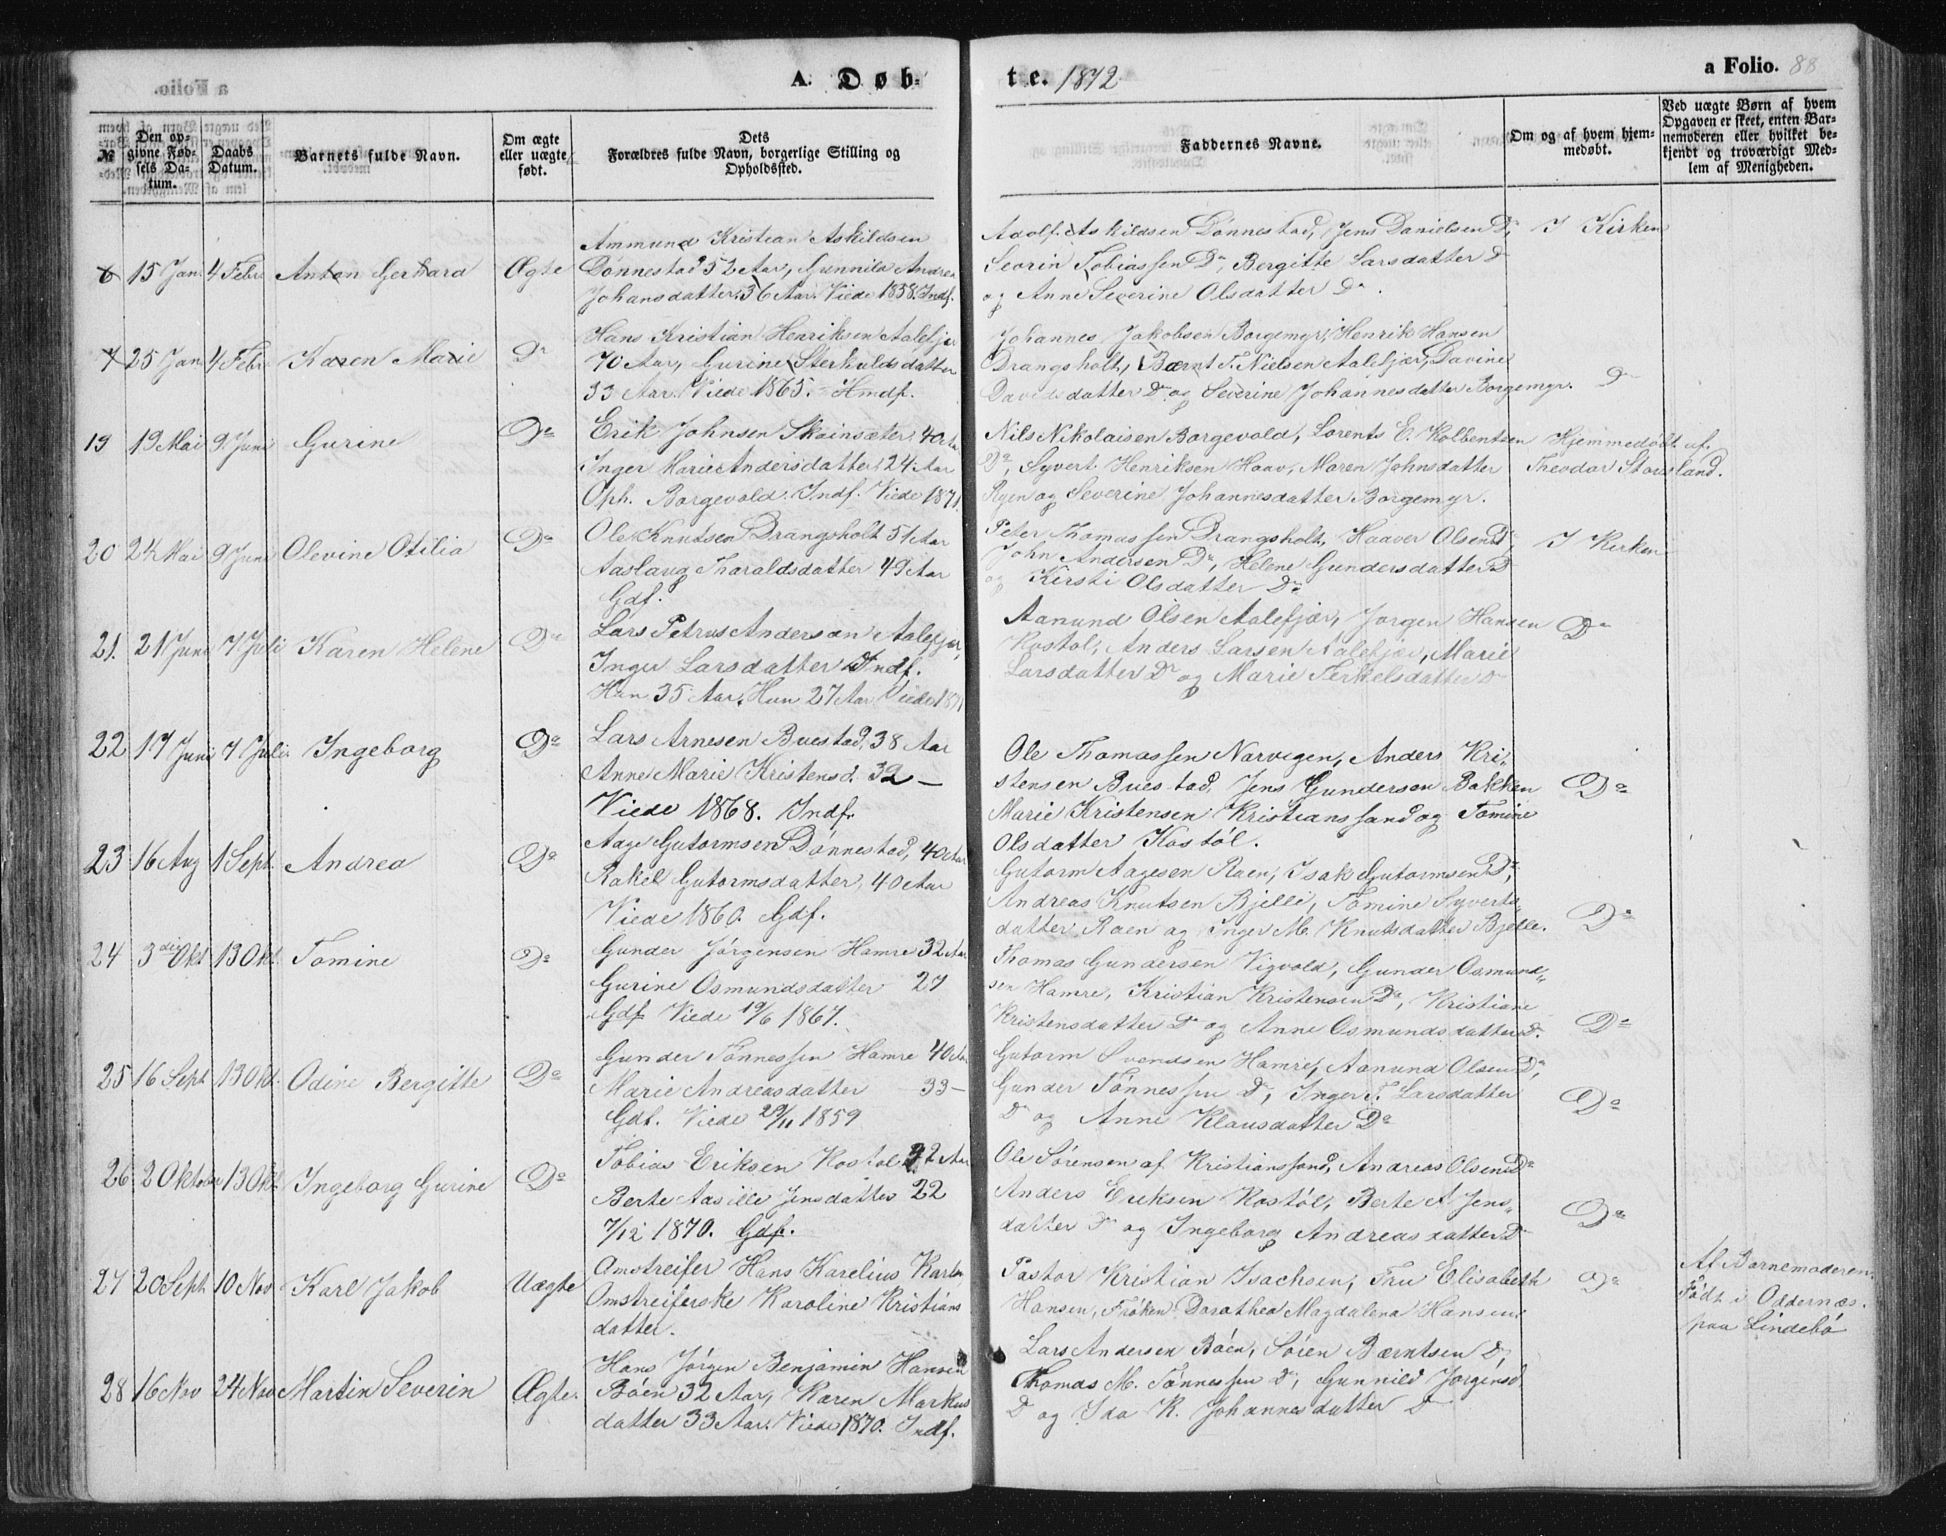 A. Døb-
te. 1872.
a Folio. 88
№
Den opgivne Fødsels Datum.
Daabs Datum.
Barnets fulde Navn.
Om ægte eller uægte født.
Dets Forældres fulde Navn, borgerlige Stilling og Opholdssted.
Faddernes Navne.
Om og af hvem hjemmedøbt.
Ved uægte Børn af hvem Opgaven er skeet, enten Barnemoderen eller hvilket bekjendt og troværdigt Medlem af Menigheden.
6 15 Jan. 4 Febr Anton Gerhard Ægte
Ammund Kristian Askildsen
Dønnestad 52 Aar, Gunnild Andrea
Johansdatter, 36 Aar. Viede 1858. Indf.
Adolf Askildsen Dønnestad, Jens Danielsen Do,
Severin Tobiassen Do, Bergitte Larsdatter Do
og Anne Severine Olsdatter Do.
I Kirken
7 25 Jan 4 Febr Karen Marie Do
Hans Kristian Henriksen Aalefjær
70 Aar, Gurine Sterkulds datter
33 Aar. Viede 1865. Hmdf.
Johannes Jakobsen Borgemyr, Henrik Hansen
Drangsholt, Bærnt T. Nielsen Aalefjær, Davine
Davids datter Do og Severine Johannesdatter Borgemyr.
Do
19 19 Mai 9 Juni Gurine Do
Erik Johnsen Skoinsæter 40 Aar
Inger Marie Andersdatter, 24 Aar
Oph. Borgevold. Indf. Viede 1871.
Nils Nikolaisen Borgevold, Lorents E. Kolbentsen
Do, Syvert Henriksen Haav, Maren Johnsdatter
Ryen og Severine Johannesdatter Borgemyr.
Hjemmedøbt af
Theodor Stovesland.
20 24 Mai 9 Juni Olevine Otilia Do
Ole Knutsen Drangsholt 51 Aar
Aaslaug Tharaldsdatter 49 Aar
Gdf.
Peter Thomassen Drangsholt, Haaver Olsen Do,
John Andersen Do, Helene Gundersdatter Do
og Kirsti Olsdatter Do
I Kirken
21. 21 Juni 7 Juli Karen Helene Do
Lars Petrus Andersen Aalefjær,
Inger Larsdatter Indf.
Han 35 Aar, Hun 27 Aar Viede 1871
Aanund Olsen Aalefjær, Jørgen Hansen
Kostøl, Anders Larsen Aalefjær, Marie
Larsdatter Do og Marie Terkelsdatter Do
Do
22 17 Juni 7 Juli. Ingeborg Do
Lars Arnesen Buestad, 38 Aar
Anne Marie Kristensd. 32 –
Viede 1868. Indf.
Ole Thomassen Narvigen, Anders Kri-
stensen Buestad, Jens Gundersen Bakken
Marie Kristensen Kristianssand og Tomine
Olsdatter Kostøl.
Do
23 16 Aug 1 Sept. Andrea Do
Aage Gutormsen Dønnestad, 40 Aar
Rakel Gutormsdatter, 40 Aar
Viede 1860. Gdf.
Gutorm Aagesen Raen, Isak Gutormsen Do,
Andreas Knutsen Bjelle, Tomine Syverts-
datter Raen og Inger M. Knutsdatter Bjelle.
Do
24 3die Okt 13 Okt. Tomine Do
Gunder Jørgensen Hamre 32 Aar
Gurine Osmundsdatter 27
Gdf Viede 19/6 1867.
Thomas Gundersen Vigvold, Gunder Osmund-
sen Hamre, Kristian Kristensen Do, Kristiane
Kristensdatter Do og Anne Osmunds datter Do.
Do
25 16 Sept 13 Okt. Odine Bergitte Do
Gunder Tønnessen Hamre 40 Aar
Marie Andreasdatter 33 –
Gdf. Viede 29/11 1859
Gutorm Svendsen Hamre, Aanund Olsen Do,
Gunder Tønnessen Do, Inger T. Larsdatter
Do og Anne Klausdatter Do
Do
26 2 Oktober 13 Okt. Ingeborg Gurine Do
Tobias Eriksen Kostøl 32 Aar
Berte Aasille Jensdatter 22
7/12 1870. Gdf.
Ole Sørensen af Kristianssand, Andreas Olsen Do
Anders Eriksen Kostøl, Berte A. Jens-
datter Do og Ingeborg Andreas datter Do
Do
27 20 Sept 10 Nov Karl Jakob Uægte
Omstreifer Hans Karelius Karls.
Omstreiferske Karoline Kristians
datter.
Pastor Kristian Isachsen, Fru Elisabeth
Hansen, Frøken Dorothea Magdalena Hansen.
Do
Af Barnemoderen.
Født i Oddernæs.
paa Lindebø
28 16 Nov 24 Nov Martin Severin Ægte.
Hans Jørgen Benjamin Hansen
Bøen 32 Aar, Karen Markus
datter 33 Aar. Viede 1870. Indf.
Lars Andersen Bøen, Søren Bærntsen Do,
Thomas M. Tønnessen Do, Gunnild Jørgensd.
Do og Ida K. Johannesdatter Do